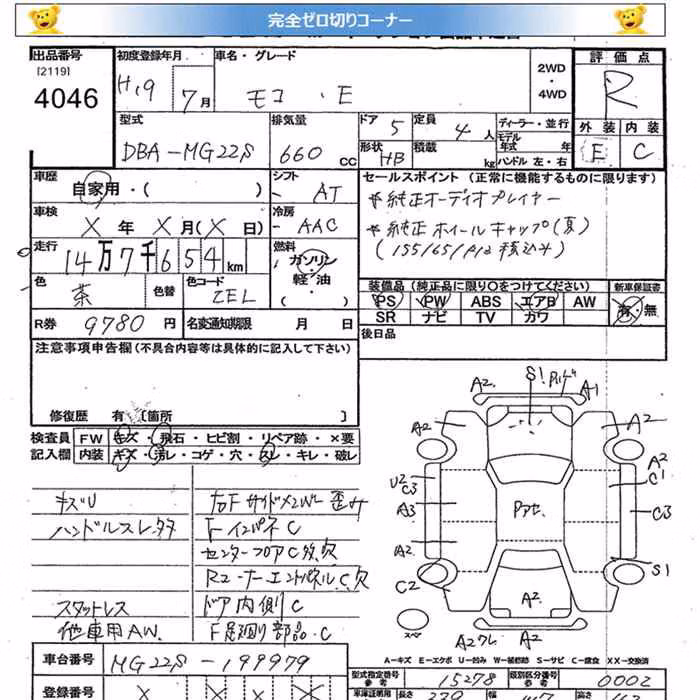 完全ゼロ切りコーナー
出品番号
[2119]
4046
初度登録年月
H19
7月
車名・グレード
モコ・E
2WD
・
4WD
評価点
R
外装 内装
E C
型式
DBA-MG22S
排気量
660 CC
ドア 5
定員 4 人
形状 HB
積載 kg
ディーラー・並行
モデル年式 年
ハンドル 左・右
車歴
自家用・( )
シフト
AT
車検
X 年 X 月(X 日)
冷房
AAC
走行
14万7千654km
燃料
ガソリン
・
軽油
・( )
色
茶
色替
色コード
ZEL
R券 9780 円
名変通知期限 月 日
セールスポイント (正常に機能するものに限ります)
*純正オーディオプレイヤー
*純正ホイールキャップ(夏)
(155/65/R13積込み)
装備品 (純正品に限り○をつけてください)
新車保証書
PS PW ABS エアB AW
SR ナビ TV カワ
有・無
後日品
注意事項申告欄(不具合内容等は具体的に記入して下さい)
修復歴 有〔箇所 〕
検査員記入欄
FW キズ・飛石・ヒビ割・リペア跡・×要
内装 キズ・汚レ・コゲ・穴・スレ・キレ・破レ
キズU
ハンドルスレ
スタットレス
他車用AW.
右Fサイドメンバー歪み
FインパネC
センターフロアC
RコーナーエンドパネルC,欠
ドア内側C
F足廻り部品・C
A2
S1
A1
A2
A2
A2
U2
C3
C1
A3
C3
A2
S1
C2
A2
A2
スペア
A2
A-キズ E-エクボ U-凹み W-補修跡 S-サビ C-腐食 XX-交換済
車台番号
MG22S-199979
型式指定番号
参考
15278
類別区分番号
参考
0002
登録番号
長さ
幅
高さ